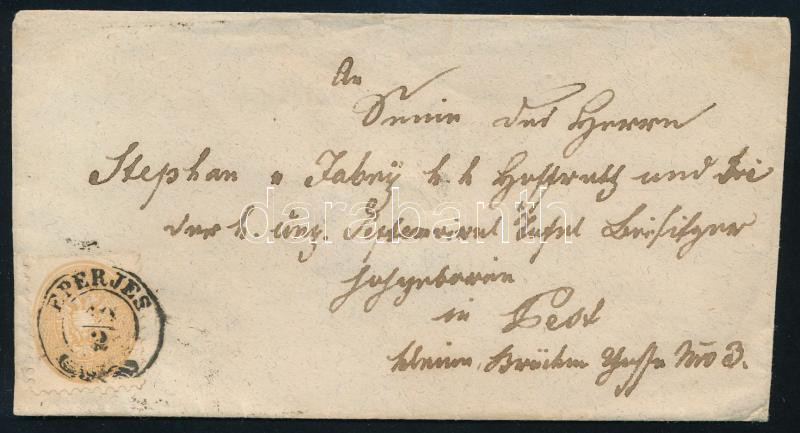 An
Seine des Herrn
Stephan v Fabry k k Hofrath und bei
der k. ung. Septemviral Tafel Beisitzer
Hochgeboren
in Pest
kleine Brücken Gasse Nro 3.
EPERJES
2
darabanth